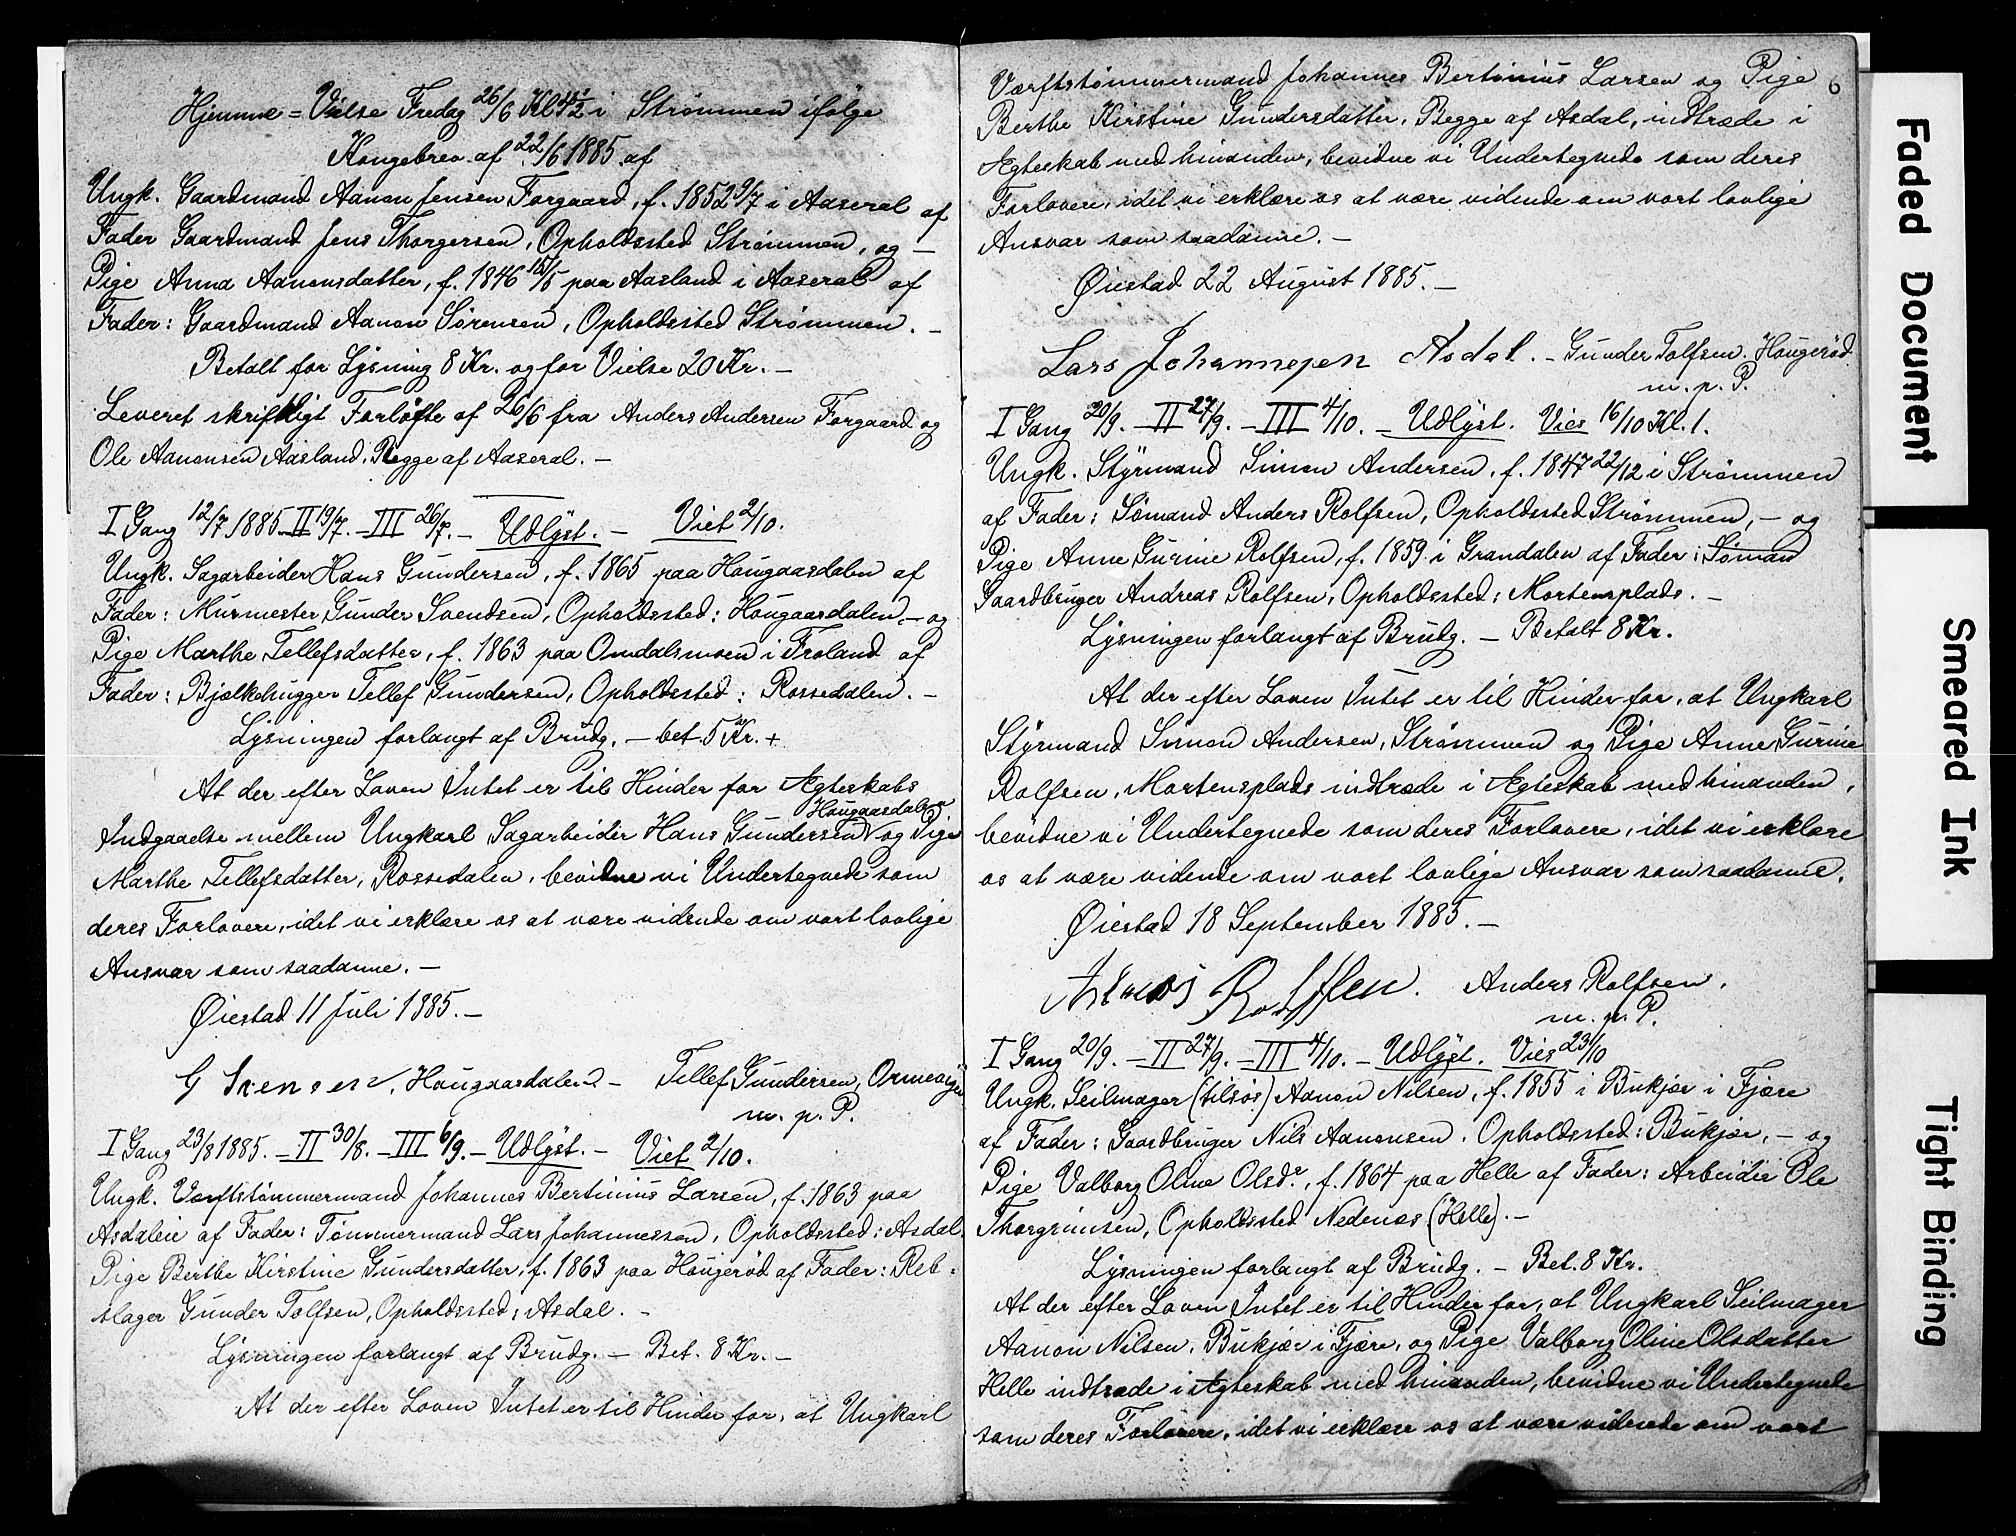 Hjemme=Vielse Fredag 26/6 Kl 4½ i Strømmen ifølge
Kongebrev af 22/6 1885 af
Ungk. Gaardmand Aanon Jensen Forgaard, f. 1852 9/7 i Aaseral af
Fader Gaardmand Jens Thorgersen, Opholdssted Strømmen, og –
Pige Anna Aanonsdatter, f. 1846 15/5 paa Aasland i Aaseral af
Fader: Gaardmand Aanon Sørensen, Opholdssted Strømmen. –
Betalt for Lysning 8 Kr. og for Vielse 20 Kr. –
Leveret skriftligt Forløfte af 26/6 fra Anders Andersen Forgaard og
Ole Aanonsen Aasland. Begge af Aaseral. –
I Gang 12/7 1885 – II 19/7. – III 26/7. – Udlyst. – Viet 2/10.
Ungk. Sagarbeider Hans Gundersen, f. 1865 paa Hougaasdalen af
Fader: Murmester Gunder Svendsen, Opholdssted: Hougaasdalen, – og
Pige Marthe Tellefsdatter, f. 1863 paa Omdalsmoen i Froland af
Fader: Bjelkehugger Tellef Gundersen, Opholdssted: Rossedalen. –
Lysningen forlangt af Brudg. – bet. 5 Kr. +
At der efter Loven Intet er til Hinder for Ægteskabs
Hougaasdalen
Indgaaelse mellem Ungkarl Sagarbeider Hans Gundersen og Pige
Marthe Tellefsdatter, Rossedalen, bevidne vi Undertegnede som
deres Forlovere, idet vi erklære os at være vidende om vort lovlige
Ansvar som saadanne. –
Øiestad 11 Juli 1885. –
G Svensen, Hougaasdalen – Tellef Gundersen, Ormevigen
m. p. P.
I Gang 23/8 1885. – II 30/8. – III 6/9. – Udlyst. – Viet 2/10.
Ungk. Verftstømmermand Johannes Bertinius Larsen, f. 1863 paa
Asdalen af Fader: Tømmermand Lars Johannessen, Opholdssted: Asdal.
Pige Berthe Kirstine Gundersdatter, f. 1863 paa Hougerød af Fader: Reb-
slager Gunder Tolfsen, Opholdssted: Asdal. –
Lysningen forlangt af Brudg. – Bet. 8 Kr. –
At der efter Loven Intet er til Hinder for, at Ungkarl
6
Værftstømmermand Johannes Bertinius Larsen og Pige
Berthe Kirstine Gundersdatter, Begge af Asdal, indtræde i
Ægteskab med hinanden, bevidne vi Undertegnede som deres
Forlovere, idet vi erklære os at være vidende om vort lovlige
Ansvar som saadanne. –
Øiestad 22 August 1885. –
Lars Johannesen Asdal. – Gunder Tolfsen. Hougerød
m. p. P.
I Gang 20/9. – II 27/9. – III 4/10. – Udlyst. Vies 16/10 Kl. 1.
Ungk. Styrmand Simon Andersen, f. 1847 22/12 i Strømmen
af Fader: Sømand Anders Rolfsen, Opholdssted Strømmen, – og
Pige Anne Gurine Rolfsen, f. 1859 i Grandalen af Fader: Søman
Gaardbruger Andreas Rolfsen, Opholdssted: Mortensplads. –
Lysningen forlangt af Brudg. – Betalt 8 Kr.
At der efter Loven Intet er til Hinder for, at Ungkarl
Styrmand Simon Andersen, Strømmen og Pige Anne Gurine
Rolfsen, Mortensplads indtræde i Ægteskab med hinanden,
bevidne vi Undertegnede som deres Forlovere, idet vi erklære
os at være vidende om vort lovlige Ansvar som saadanne.
Øiestad 18 September 1885. –
Rolffsen. Anders Rolfsen.
m. p. P.
I Gang 20/9. – II 27/9. – III 4/10. – Udlyst. Vies 23/10
Ungk. Seilmager (tilsøs) Aanon Nilsen, f. 1855 i Bukjær i Fjære
af Fader: Gaardbruger Nils Aanonsen. Opholdssted: Bukjær, – og
Pige Valborg Oline Olsdr, f. 1864 paa Helle af Fader: Arbeider Ole
Thorgrimsen, Opholdssted Nedenæs (Helle). –
Lysningen forlangt af Brudg. – Bet. 8 Kr.
At der efter Loven Intet er til Hinder for, at Ungkarl Seilmager
Aanon Nilsen, Bukjær i Fjære, og Pige Valborg Oline Olsdatter
Helle indtræde i Ægteskab med hinanden, bevidne vi Undertegnede
som deres Forlovere, idet vi erklære os at være vidende om vort
Faded Document
Smeared Ink
Tight Binding